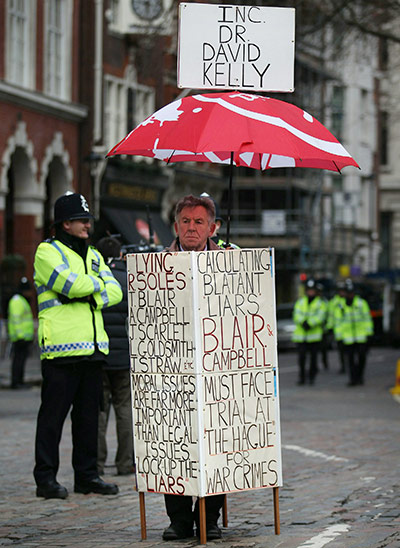 INC.
DR.
DAVID
KELLY
LYING
RSOLES
BLAIR
CAMPBELL
SCARLET
GOLDSMITH
STRAW ETC
MORAL ISSUES
ARE FAR MORE
IMPORTANT
THAN LEGAL
ISSUES
LOCK UP THE
LIARS
CALCULATING
BLATANT
LIARS
BLAIR &
CAMPBELL
MUST FACE
TRIAL AT
THE HAGUE
FOR
WAR CRIMES